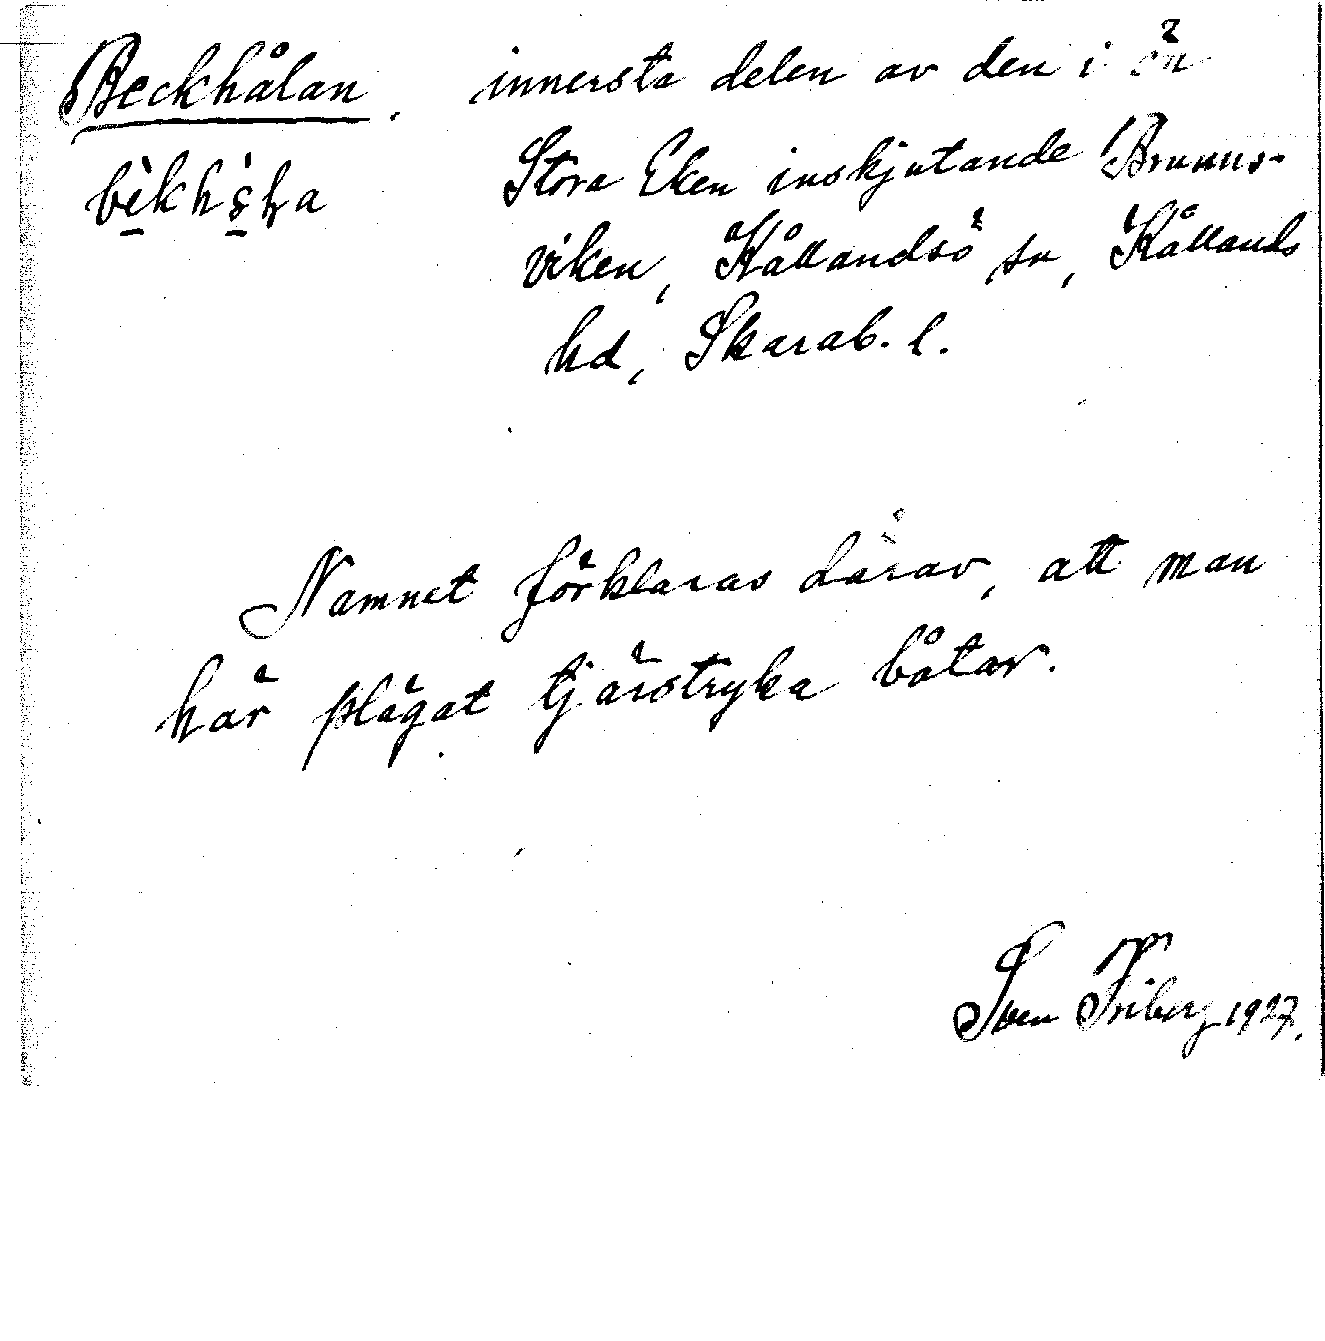 Beckhålan. innersta delen av den i ön
Stora Eken inskjutande Brunns-
viken, Kållandsö sn, Kållands
hd, Skarab. l.
Namnet förklaras därav, att man
här plägat tjärstryka båtar.
Sven Friberg 1927.